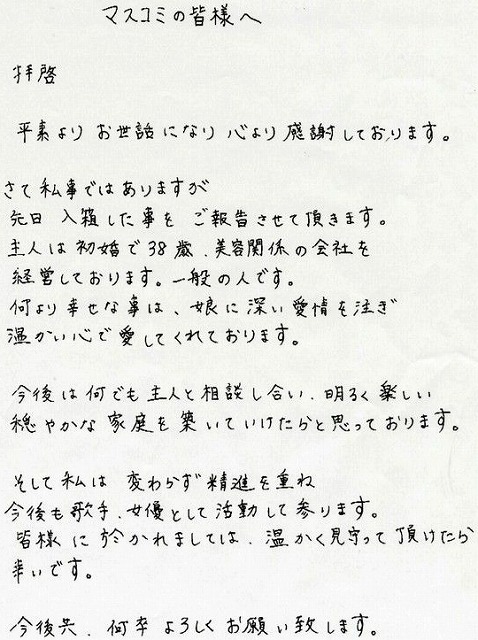 マスコミの皆様へ
拝啓
平素より お世話になり 心より 感謝しております。
さて私事ではありますが
先日 入籍した事を ご報告させて頂きます。
主人は初婚で38歳、美容関係の会社を
経営しております。一般の人です。
何より幸せな事は、娘に深い愛情を注ぎ
温かい心で愛してくれております。
今後は何でも主人と相談し合い、明るく楽しい
穏やかな家庭を築いていけたらと思っております。
そして私は 変わらず精進を重ね
今後も歌手、女優として活動して参ります。
皆様に於かれましては、温かく見守って頂けたら
幸いです。
今後共、何卒よろしくお願い致します。